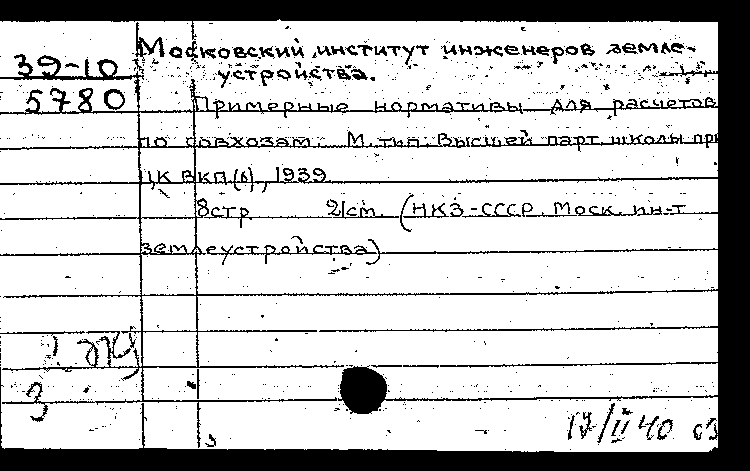 Московский институт инженеров земле-
39-10
устройства.
5780
Примерные нормативы для расчетов
по совхозам. М. тип. Высшей парт. школы при
ЦК ВКП(б), 1939
8стр 21см. (НКЗ-СССР. Моск. ин-т
землеустройства)
3
17/II 40